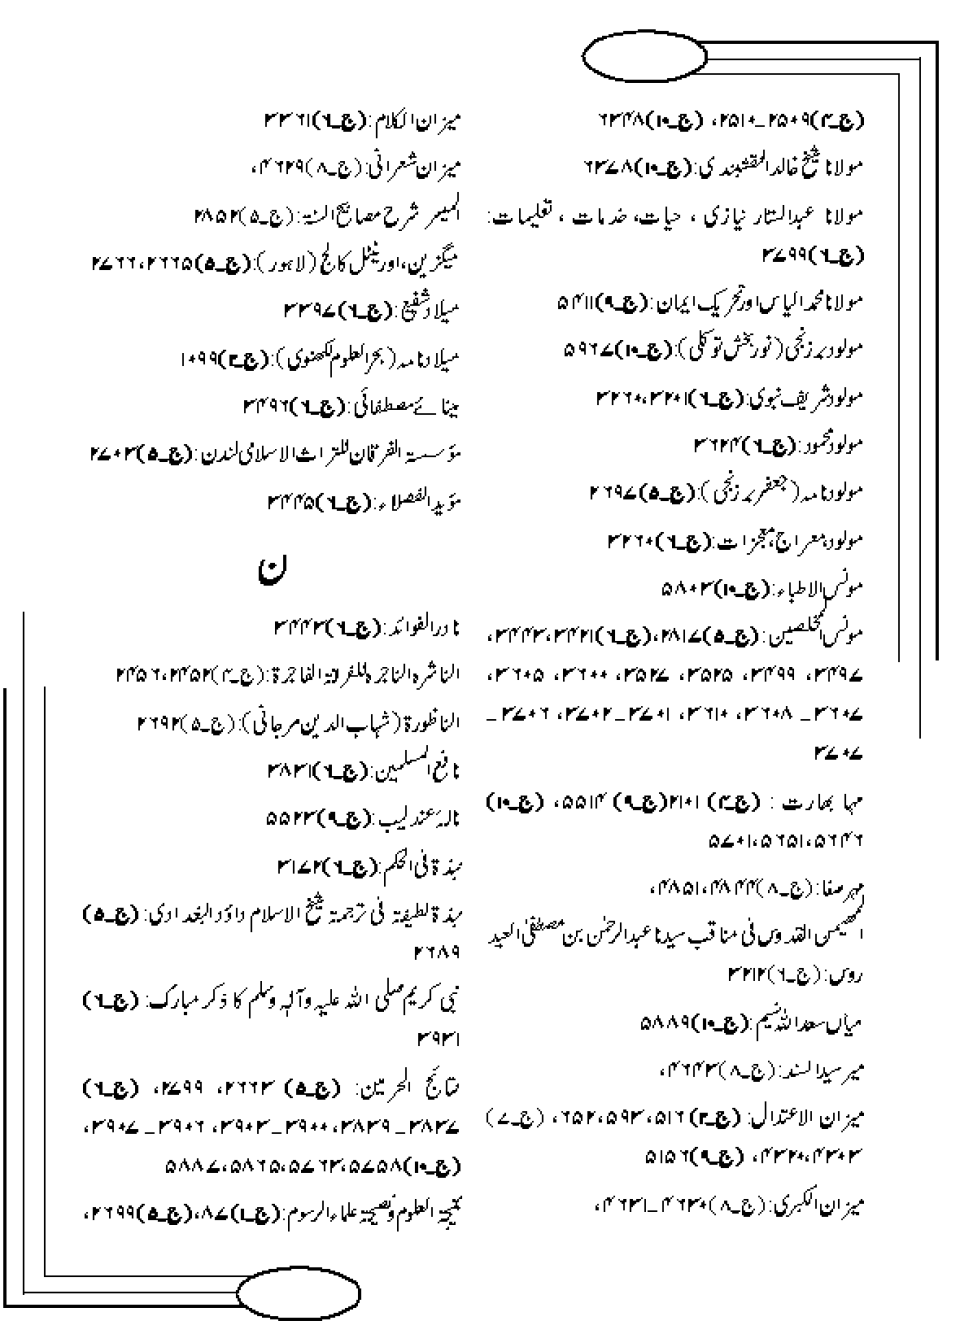 (ج۔۴)۲۵۰۹۔۲۵۱۰، (ج۔۱۰)۶۳۴۸
مولانا شیخ خالد النقشبندی:(ج۔۱۰)۶۳۷۸
مولانا عبدالستار نیازی ، حیات، خدمات ، تعلیمات:
(ج۔۶)۳۷۹۹
مولانا محمد الیاس اور تحریک ایمان:(ج۔۹)۵۴۱۱
مولود برزنجی(نور بخش توکلی):(ج۔۱۰)۵۹۶۷
مولود شریف نبوی:(ج۔۶)۳۲۰۱،۳۲۶۰
مولود محمود:(ج۔۶)۳۶۲۴
مولود نامہ(جعفر برزنجی):(ج۔۵)۲۶۹۷
مولود،معراج،معجزات:(ج۔۶)۳۲۶۰
مونس الاطباء:(ج۔۱۰)۵۸۰۳
مونس المخلصین:(ج۔۵)۲۸۱۷،(ج۔۶)۳۴۲۱،۳۴۴۳،
۳۴۹۷، ۳۴۹۹، ۳۵۲۵، ۳۵۲۷، ۳۶۰۰، ۳۶۰۵،
۳۶۰۷۔ ۳۶۰۸، ۳۶۱۰، ۳۷۰۱۔۳۷۰۲، ۳۷۰۶۔
۳۷۰۷
مہا بھارت : (ج۔۴) ۲۱۰۱(ج۔۹) ۵۵۱۴، (ج۔۱۰)
۵۶۴۶،۵۶۵۱،۵۷۰۱
مہر صفا:(ج۔۸)۴۸۴۴،۴۸۵۱،
المہیمن القدوس فی مناقب سیدنا عبدالرحمٰن بن مصطفیٰ العید
روس:(ج۔۶)۳۲۱۲
میاں سعد اللہ نسیم:(ج۔۱۰)۵۸۸۹
میر سید السند:(ج۔۸)۴۶۴۳،
میزان الاعتدال: (ج۔۲)۵۱۶، ۵۹۳، ۶۵۲، (ج۔۷)
۴۳۰۳، ۴۳۲۰، (ج۔۹)۵۱۵۶
میزان الکبریٰ:(ج۔۸)۴۶۳۰۔۴۶۳۱،
میزان الکلام:(ج۔۶)۳۳۶۱
میزان شعرانی:(ج۔۸)۴۶۲۹،
المیسر شرح مصابیح السنۃ:(ج۔۵)۲۸۵۲
میگزین،اورینٹل کالج(لاہور):(ج۔۵)۲۶۶۵،۲۷۶۶
میلاد شفیع:(ج۔۶)۳۳۹۷
میلاد نامہ(بحر العلوم لکھنوی):(ج۔۲)۱۰۹۹
مینائے مصطفائی:(ج۔۶)۳۴۹۶
مؤسسۃ الفرقان للتراث الاسلامی لندن:(ج۔۵)۲۷۰۳
مؤید الفضلاء:(ج۔۶)۳۴۴۵
ن
نادر الفوائد:(ج۔۶)۳۴۴۳
الناشرہ الناجرہ للفرقۃ الفاجرۃ:(ج۔۴)۲۴۵۲،۲۴۵۶
الناظورۃ(شہاب الدین مرجانی):(ج۔۵)۲۶۹۲
نافع المسلمین:(ج۔۶)۳۸۳۱
نالۂ عندلیب:(ج۔۹)۵۵۲۳
نبذۃ فی الحکم:(ج۔۶)۳۱۷۲
نبذۃ لطیفۃ فی ترجمۃ شیخ الاسلام داؤد البغدادی: (ج۔۵)
۲۶۸۹
نبی کریم صلی اللہ علیہ وآلہ وسلم کا ذکر مبارک: (ج۔۶)
۳۹۳۱
نتائج الحرمین: (ج۔۵) ۲۶۶۳، ۲۷۹۹، (ج۔۶)
۳۸۳۷۔ ۳۸۳۹، ۳۹۰۰۔ ۳۹۰۳، ۳۹۰۶۔ ۳۹۰۷،
(ج۔۱۰)۵۷۵۸،۵۷۶۳،۵۸۶۵،۵۸۸۷
نتیجۃ العلوم ونصیحۃ علماء الرسوم:(ج۔۱)۸۷،(ج۔۵)۲۶۹۹،